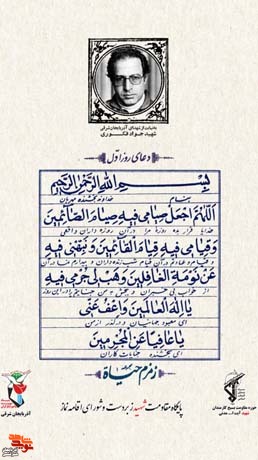 به نیابت از شهدای آذربایجان شرقی
شهید جواد فکوری
دعای روز اول
بِسْمِ اللهِ الرَّحْمنِ الرَّحیمِ
بنام خداوند بخشنده مهربان
اَللّهُمَّ اجْعَلْ صِیامی فیهِ صِیامَ الصّائِمینَ
خدایا قرار بده روزه مرا در آن روزه داران واقعی
وَ قِیامی فیهِ قِیامَ الْقائِمینَ وَ نَبِّهْنی فیهِ
و قیام و عبادتم در آن قیام شب زنده داران و بیدارم نما در آن
عَنْ نَوْمَةِ الْغافِلینَ وَ هَبْ لی جُرْمی فیهِ
از خواب بی خبران و ببخش به من جنایتم را در این روز
یا اِلهَ الْعالَمینَ وَ اعْفُ عَنّی
ای معبود جهانیان و درگذر از من
یا عافِیاً عَنِ الْمُجْرِمینَ
ای بخشنده جنایات کاران
زمزم حیات
پایگاه مقاومت شهید زبردست و شورای اقامه نماز
حوزه مقاومت بسیج کارمندان
آذربایجان شرقی